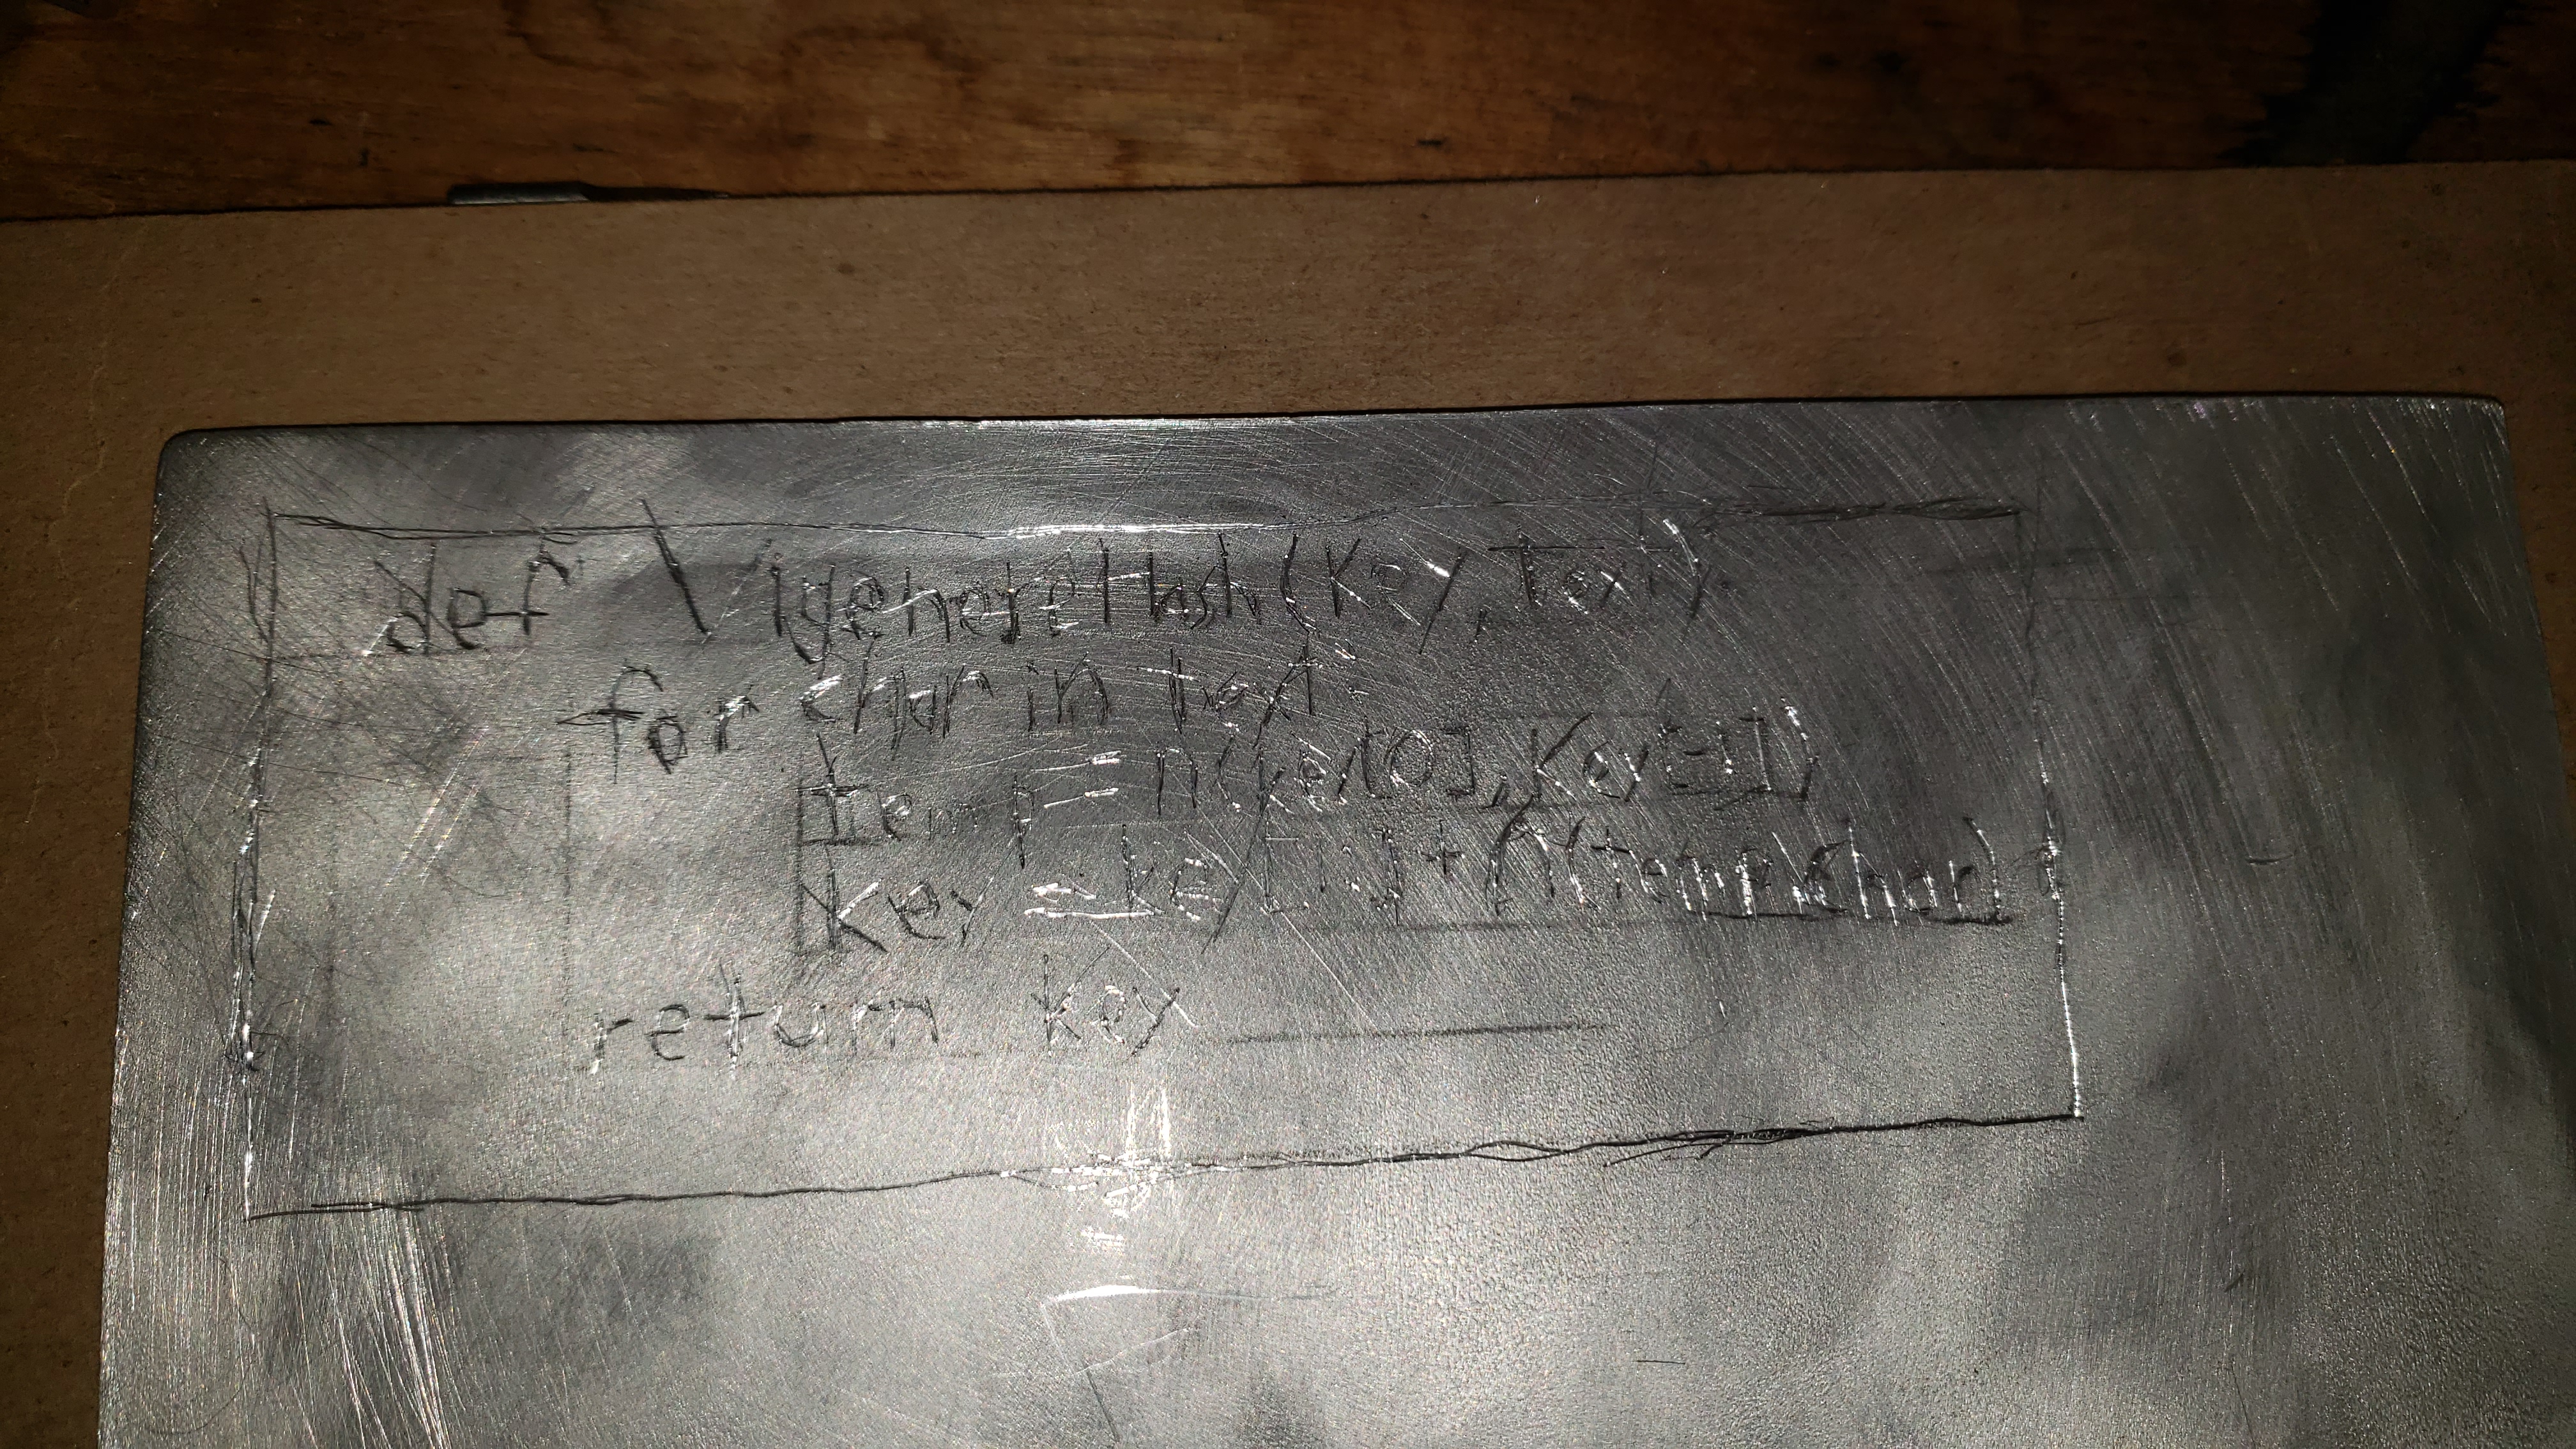 def VigenereHash(Key, Text):
for char in text:
temp = n(key[0], Key[-1])
Key = key[1:] + n(temp, char)
return key